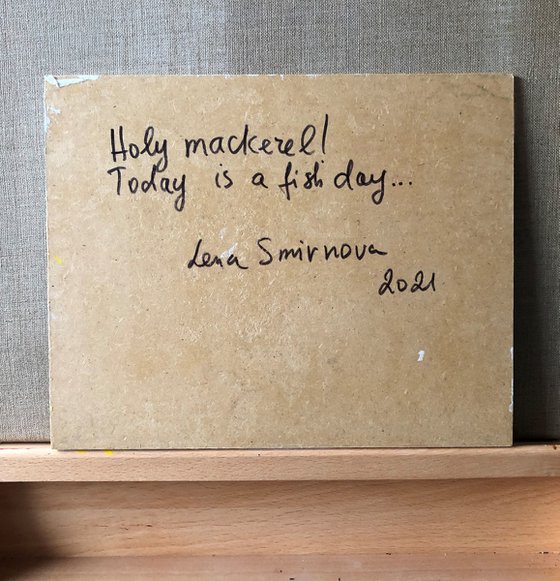 Holy mackerel!
Today is a fish day...
Lena Smirnova
2021